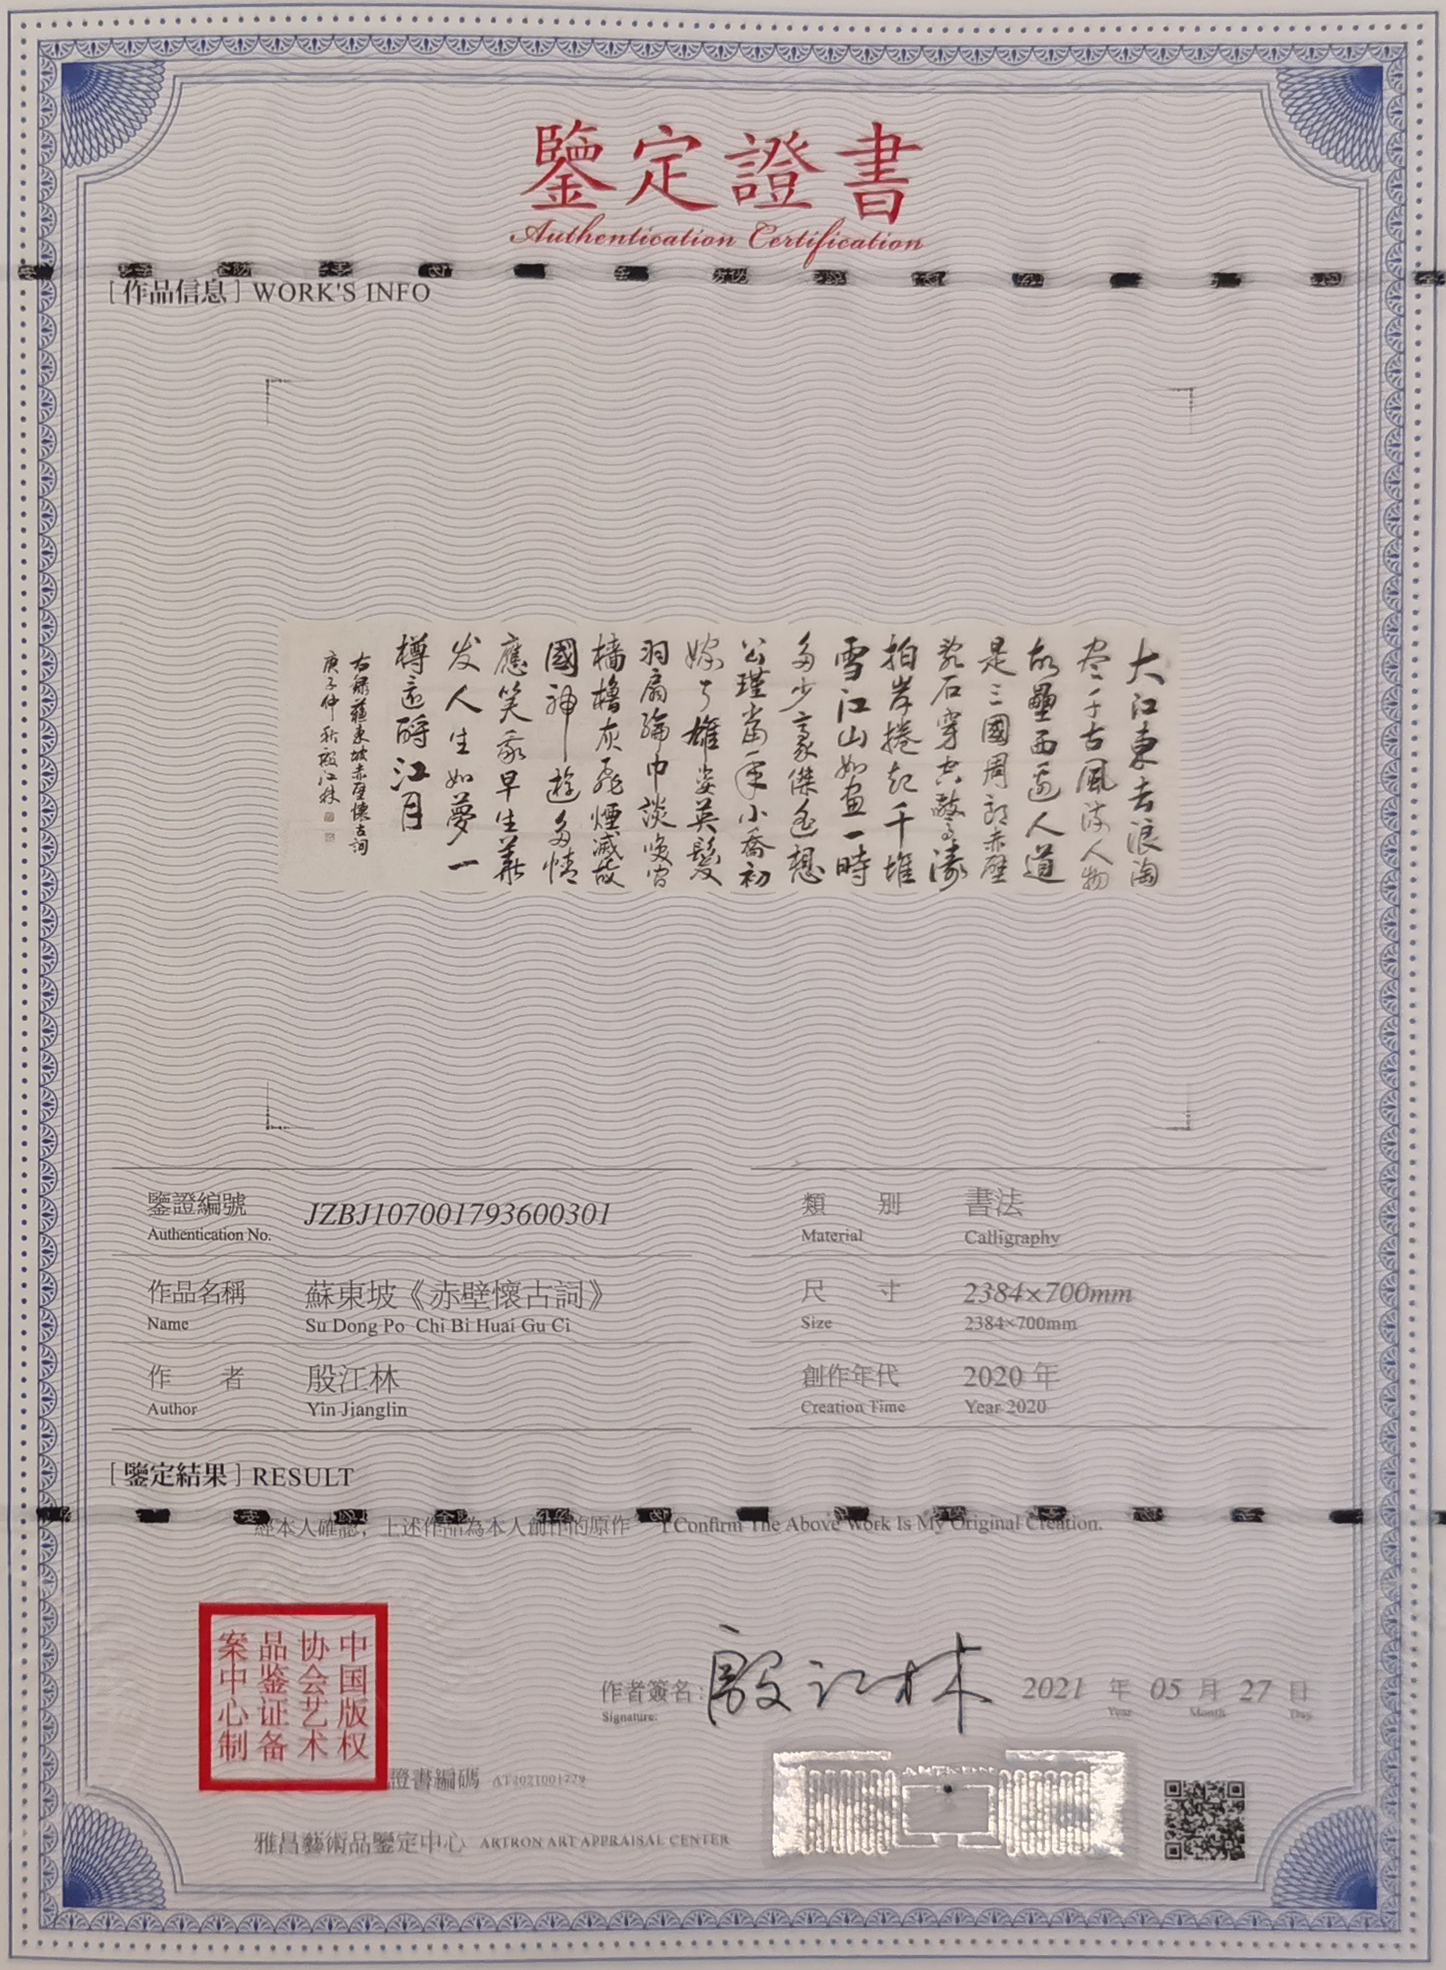 鑒定證書
Authentication Certification
[作品信息] WORK'S INFO
大江東去浪淘
尽千古風流人物
故壘西邊人道
是三國周郎赤壁
乱石穿空驚濤
拍岸捲起千堆
雪江山如画一時
多少豪傑遙想
公瑾當年小喬初
嫁了雄姿英髮
羽扇綸巾談笑間
檣櫓灰飛煙滅故
國神遊多情
應笑我早生華
发人生如夢一
樽還酹江月
右録蘇東坡赤壁懷古詞
庚子仲秋殷江林
鑒證編號 JZBJ107001793600301 類別 書法
Authentication No. Material Calligraphy
作品名稱 蘇東坡《赤壁懷古詞》 尺寸 2384×700mm
Name Su Dong Po Chi Bi Huai Gu Ci Size 2384×700mm
作者 殷江林 創作年代 2020 年
Author Yin Jianglin Creation Time Year 2020
[鑒定結果] RESULT
經本人確認，上述作品為本人創作的原作 I Confirm The Above Work Is My Original Creation.
中国版权
协会艺术
品鉴证备
案中心制
作者簽名: 殷江林 2021 年 05 月 27 日
Signature: Year Month Day
證書編碼
雅昌藝術品鑒定中心 ARTRON ART APPRAISAL CENTER